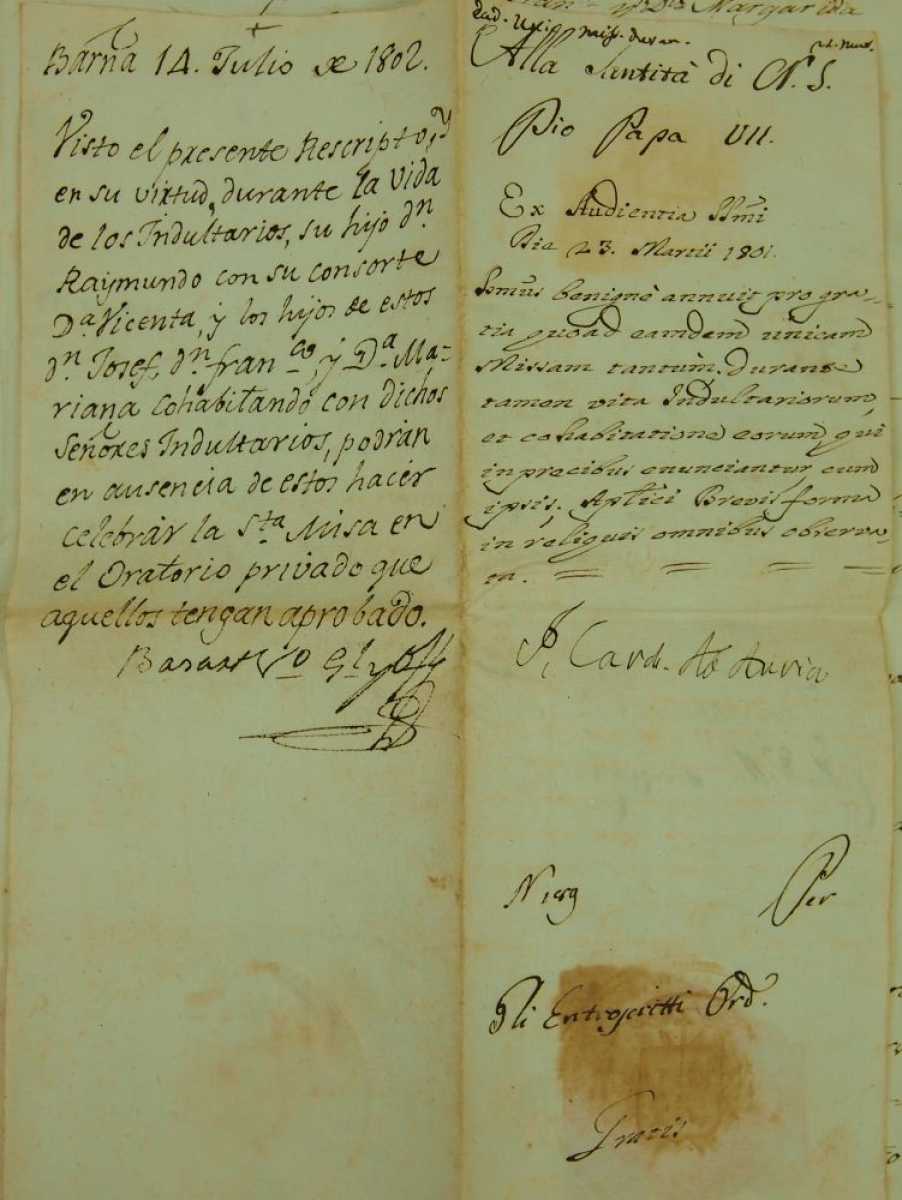 Barna 14. Julio de 1802.
Visto el presente Rescripto, y
en su virtud, durante la vida
de los Indultarios, su hijo dn.
Raymundo con su consorte
Da. Vicenta, y los hijos de estos
dn. Josef, dn. franco, y Da. Ma=
riana cohabitando con dichos
Señores Indultarios, podrán
en ausencia de estos hacer
celebrar la Sta. Misa en
el Oratorio privado que
aquellos tengan aprobado.
Vo. Gl. y Off
Da. Margarida
Alla Santità di N. S.
Pio Papa VII.
Ex Audientia SSmi
Die 23. Martii 1801.
SSmus benignè annuit pro gra=
tia quoad eamdem unicam
Missam tantùm, durante
tamen vita Indultariorum,
et cohabitatione eorum, qui
in precibus enunciantur, cum
ipsis; Aptlici Brevis forma
in reliquis omnibus observa=
ta.
Card.
Per
Gli Entroscritti Ord.
Gratis